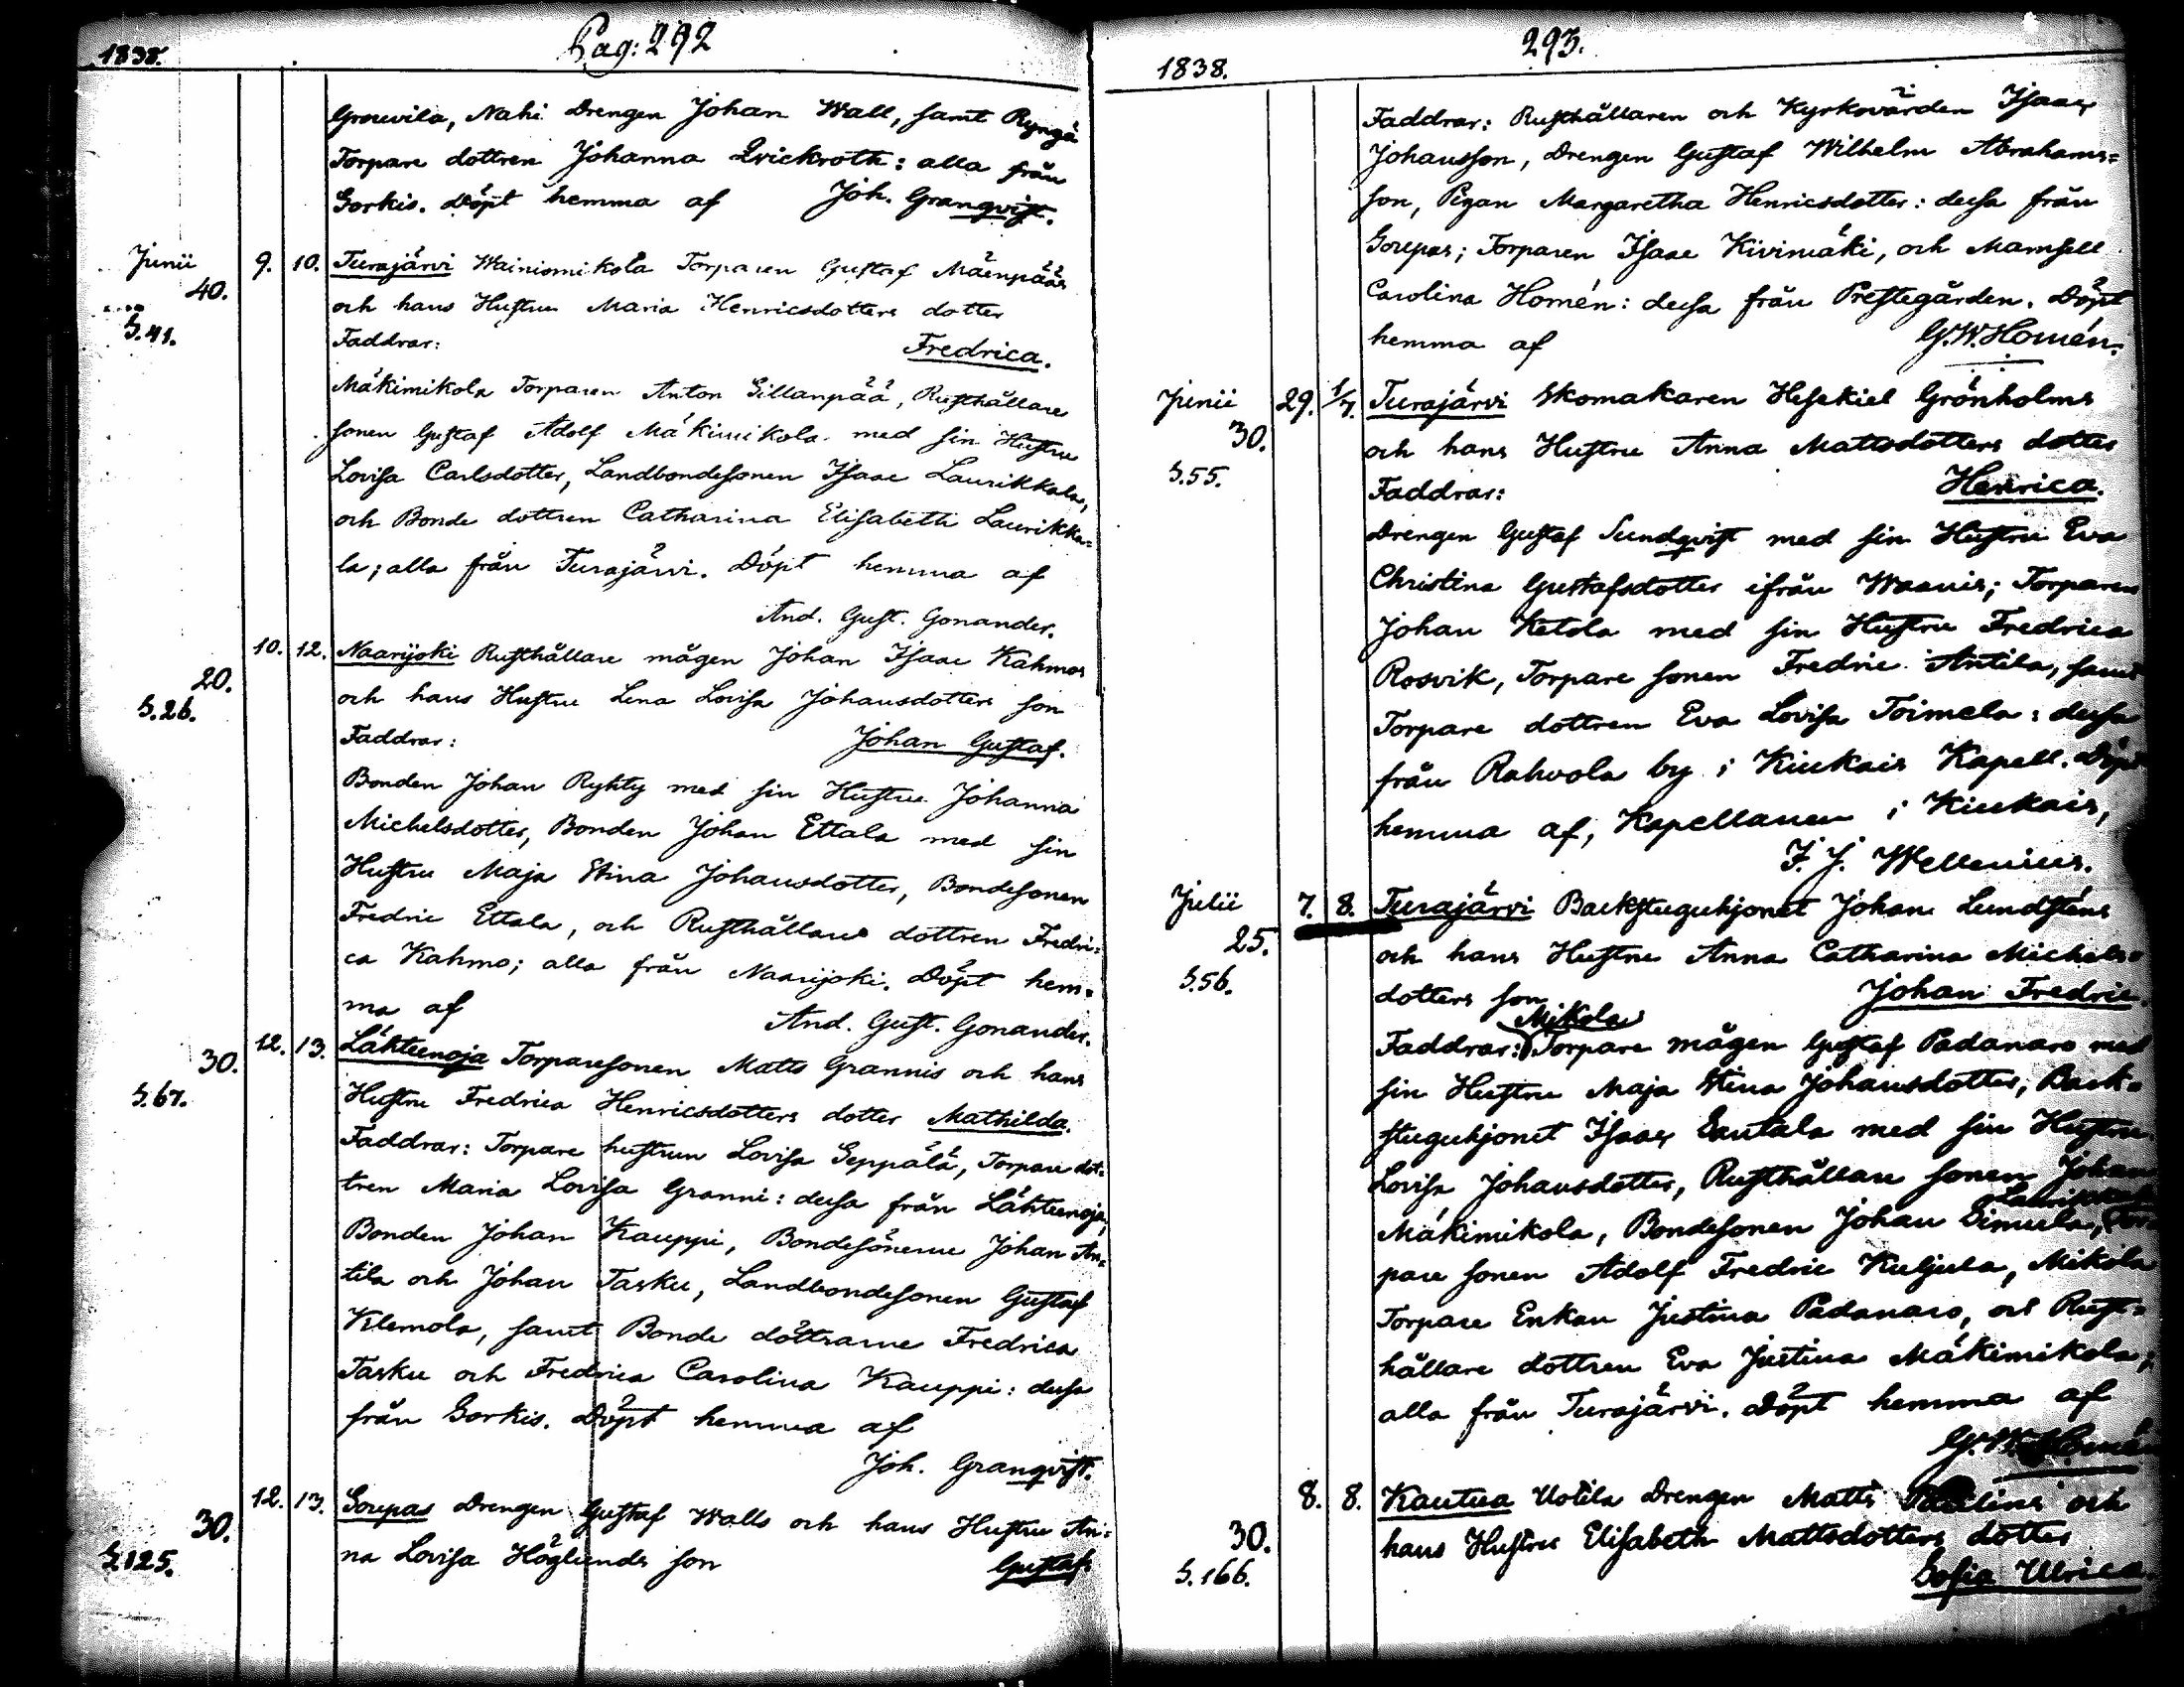 1838.
Pag: 292
Grouvila, Nahi Drengen Johan Wall, samt Ryngä
Torpare dottren Johanna Qvickroth: alla från
Sorkis. Döpt hemma af Joh. Granqvist.
Junii 9. 10. Turajärvi Wainiomikola Torparen Gustaf Mäenpääs
40. och hans Hustru Maria Henricsdotters dotter
S. 41. Faddrar: Fredrica.
Mäkimikola Torparen Anton Sillanpää, Rusthållare
sonen Gustaf Adolf Mäkimikola med sin Hustru
Lovisa Carlsdotter, Landbondesonen Isaac Laurikkala,
och Bonde dottren Catharina Elisabeth Laurikka=
la; alla från Turajärvi. Döpt hemma af
And. Gust. Gonander.
10. 12. Naarijoki Rusthållare mågen Johan Isaac Kahmos
20. och hans Hustru Lena Lovisa Johansdotters son
S. 26. Faddrar: Johan Gustaf.
Bonden Johan Ryhty med sin Hustru Johanna
Michelsdotter, Bonden Johan Ettala med sin
Hustru Maja Stina Johansdotter, Bondesonen
Fredric Ettala, och Rusthållare dottren Fredri=
ca Kahmo; alla från Naarijoki. Döpt hem=
ma af And. Gust. Gonander.
12. 13. Lähteenoja Torparesonen Matts Grannis och hans
30. Hustru Fredrica Henricsdotters dotter Mathilda.
S. 67. Faddrar: Torpare hustrun Lovisa Seppälä, Torpare dot=
tren Maria Lovisa Granni: dessa från Lähteenoja,
Bonden Johan Kauppi, Bondesönerne Johan An=
tila och Johan Tasku, Landbondesonen Gustaf
Klemola, samt Bonde döttrarne Fredrica
Tasku och Fredrica Carolina Kauppi: dessa
från Sorkis. Döpt hemma af
Joh. Granqvist.
12. 13. Sorepas Drengen Gustaf Walls och hans Hustru An=
30. na Lovisa Höglunds son Gustaf.
S. 125.
1838.
293.
Faddrar: Rusthållaren och Kyrkovärden Isaac
Johansson, Drengen Gustaf Wilhelm Abrahams=
son, Pigan Margaretha Henricsdotter: dessa från
Sorepas; Torparen Isaac Kivimäki, och Mamsell
Carolina Homén: dessa från Prestegården. Döpt
hemma af G. W. Homén.
Junii 29. 1/7. Turajärvi Skomakaren Hesekiel Grönholms
30. och hans Hustru Anna Mattsdotters dotter
S. 55. Faddrar: Henrica.
Drengen Gustaf Sundqvist med sin Hustru Eva
Christina Gustafsdotter ifrån Waanis; Torparen
Johan Ketola med sin Hustru Fredrica
Rosvik, Torpare sonen Fredric Antila, samt
Torpare dottren Eva Lovisa Toimela: dessa
från Rahvola by i Kiukais Kapell. Döpt
hemma af, Kapellanen i Kiukais,
F. J. Wellenius.
Julii 7. 8. Turajärvi Backstuguhjonet Johan Lundsténs
25. och hans Hustru Anna Catharina Michels=
S. 56. dotters son Johan Fredric.
Mikola
Faddrar: Torpare mågen Gustaf Padanaro med
sin Hustru Maja Stina Johansdotter, Back=
stuguhjonet Isaac Santala med sin Hustru
Lovisa Johansdotter, Rusthållare sonen Johan
Laurikkala
Mäkimikola, Bondesonen Johan Simula, Tor=
pare sonen Adolf Fredric Kuljula, Mikola
Torpare Enkan Justina Padanaro, och Rust=
hållare dottren Eva Justina Mäkimikola;
alla från Turajärvi. Döpt hemma af
G. W. Homén
8. 8. Kautua Uotila Drengen Matts Paulins och
30. hans Hustru Elisabeth Mattsdotters dotter
S. 166. Sofia Ulrica.